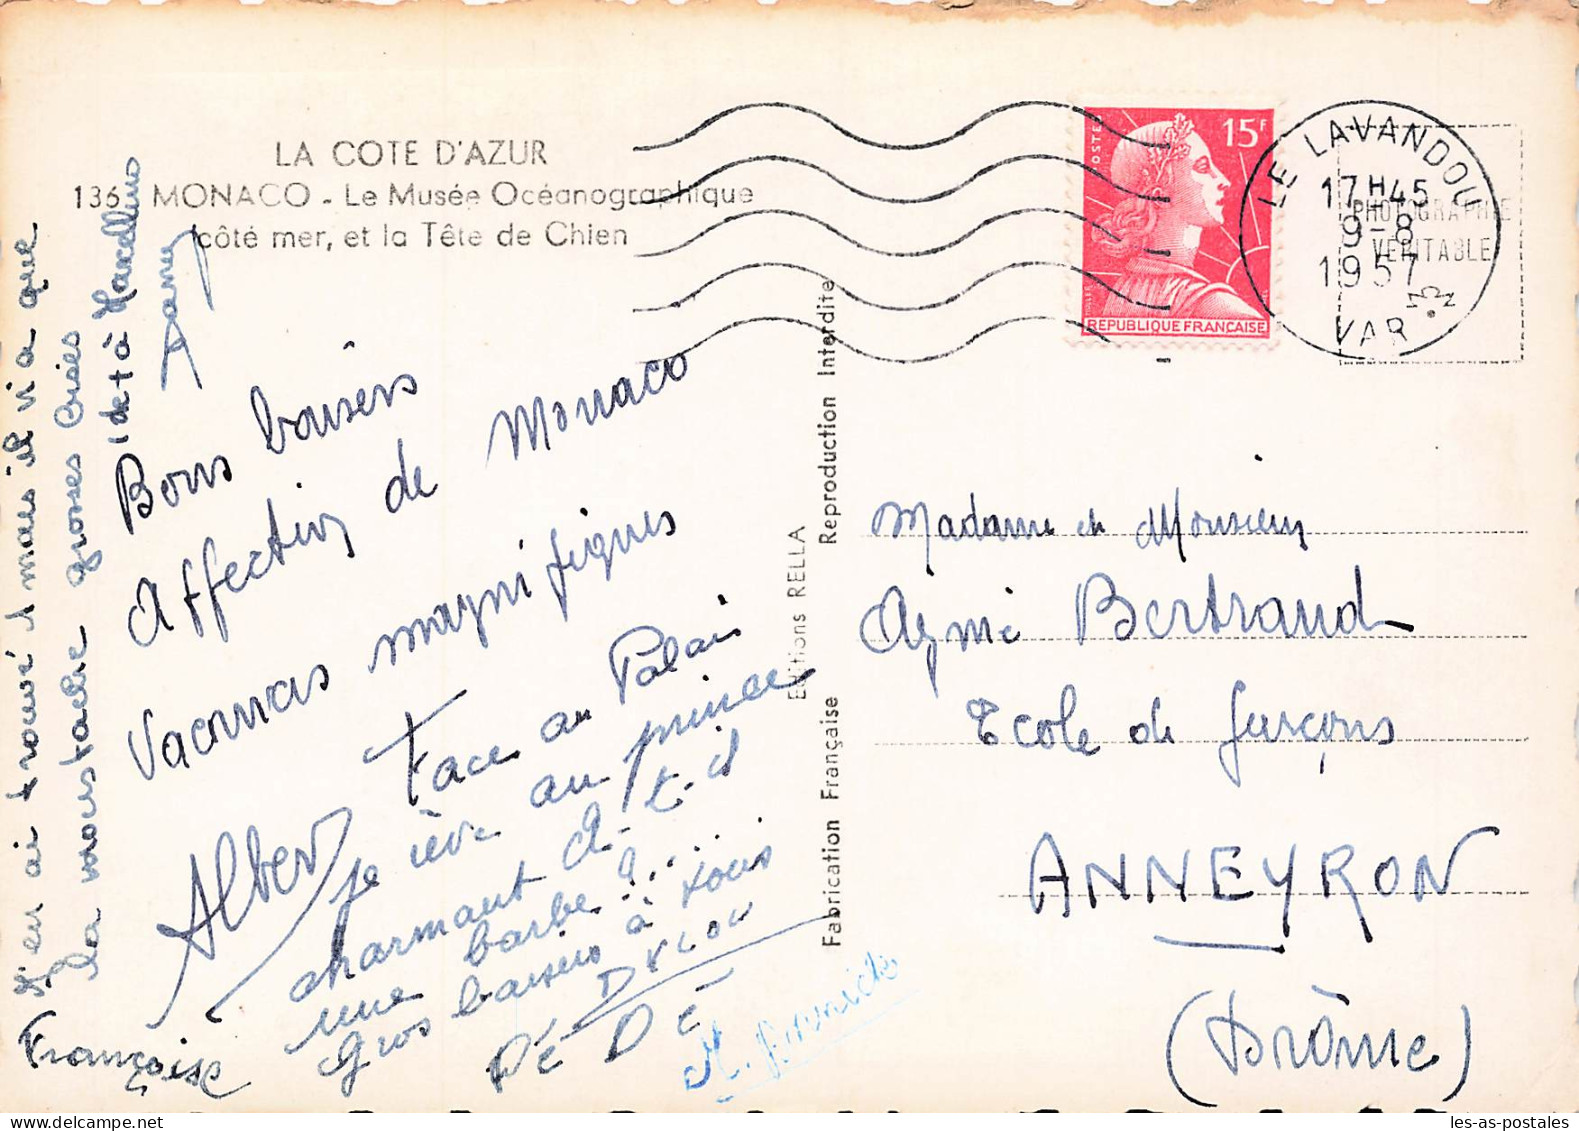 LA COTE D'AZUR
136 MONACO - Le Musée Océanographique
côté mer, et la Tête de Chien
15F
POSTES
REPUBLIQUE FRANÇAISE
LE LAVANDOU
17H45
9-8
1957
VAR
PHOTOGRAPHIE
VERITABLE
Reproduction Interdite
Editions RELLA
Fabrication Française
Bons baisers
Affectifs de Monaco
Vacances magnifiques
Albert
Face au Palais
je rêve au prince
charmant a-t-il
une barbe ?.....
Gros baisers à tous
DÉ DÉ
Françoise
J'en ai trouvé 1 mais il n'a que
la moustache grosses bises
et à Marcellino
Madame et Monsieur
Aymé Bertrand
Ecole de garçons
ANNEYRON
(Drôme)
les-as-postales